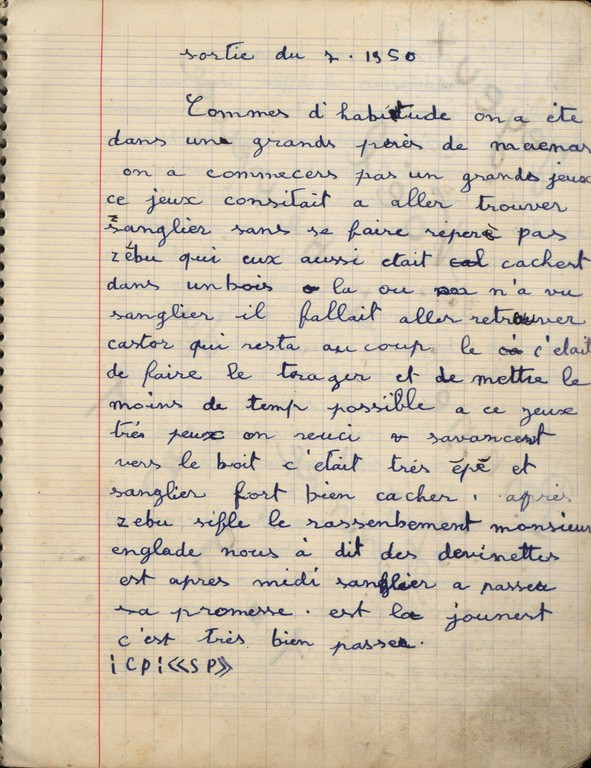 sortie du 7. 1950
Commes d'habitude on a été
dans une grands près de
on a commecers pas un grands jeux
ce jeux consitait a aller trouver
sanglier sans se faire réperè pas
zébu qui eux aussi etait cachest
dans un bois la ou n'a vu
sanglier il fallait aller retrouver
castor qui resta au coup le c'etait
de faire le trager et de mettre le
moins de temp possible a ce jeux
trés peux on reuci savancent
vers le boit c'était trés épé et
sanglier fort bien cacher. aprés
zebu sifle le rassenbement monsieur
englade nous à dit des devinettes
est apres midi sanglier a passeu
sa promesse. est la jounest
c'est très bien passeé.
¡CP¡«SP»